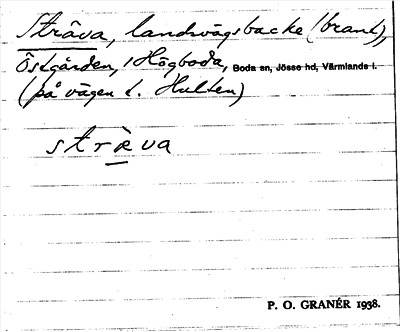 Sträva, landsvägsbacke (brant),
Östgården, Högboda, Boda sn, Jösse hd, Värmlands l.
(på vägen t. Hulten)
sträva
P. O. GRANÉR 1938.